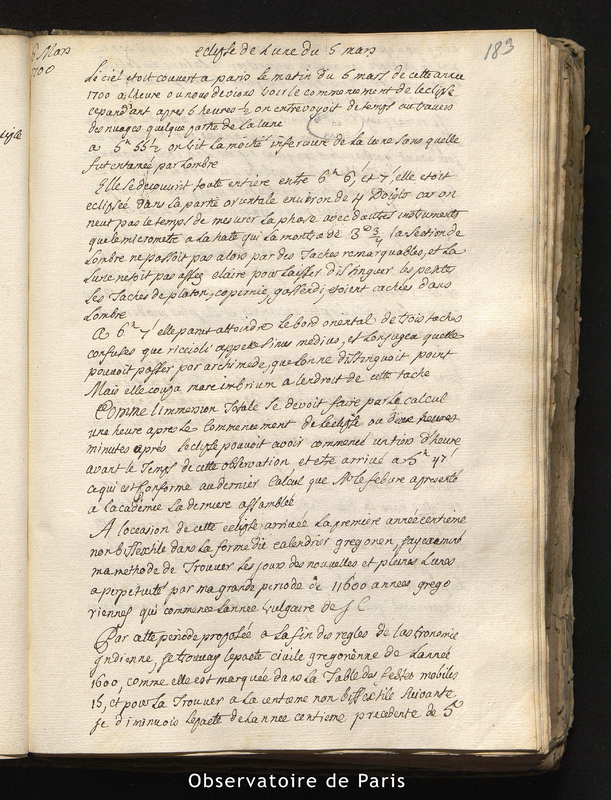 eclipse de Lune du 5 mars
183
5 Mars
1700
Le ciel etoit couvert a paris le matin du 5 mars de cette annee
1700 a lheure ou nous devions voir le commencement de leclipse
cependant apres 6 heures ½ on entrevoyoit de temps au travers
des nuages quelque partie de la lune
a 6h 55 ½ on vit la moitié inferieure de la lune sans quelle
fut entamée par Lombre
Elle se decouvrit toute entiere entre 6h 6' et 7' elle etoit
eclipsée dans la partie orientale environ de 4 Doigts car on
neut pas le temps de mesurer la phase avec dautres instruments
que le micrometre a la hate qui la montra de 3D ¾ la section de
Lombre ne passoit pas alors par des Taches remarquables, et La
Lune netoit pas assez claire pour laisser distinguer les petites
Les Taches de platon, copernic, gassendi, etoient cachées dans
Lombre
A 6h 7' elle parut attoindre le bord oriental de trois taches
confuses que riccioli appelle sinus medius, et Lon jugea quelle
pouvoit passer par archimede, que Lonne distinguoit point
Mais elle coupa mare imbrium a lendroit de cette tache
Comme limmersion Totale se devoit faire par Le calcul
une heure apres Le Commencement de Leclipse ou
minutes après leclipse pouvoit avoir commencé un tiers dheure
avant le Temps de cette observation et etre arrivé a 5h 47'
ce qui est Conforme au dernier Calcul que Mr le febvre a presenté
a Lacademie La derniere assamblée
A loccasion de cette eclipse arrivée La premiere année centieme
non bissextile dans la forme du calendrier gregorien, jay examiné
ma methode de Trouver Les jours des nouvelles et pleines Lunes
a perpetuité par ma grande periode de 11600 annees grego
riennes qui commence Lannee vulgaire de J C
Par cette periode proposée a La fin des regles de lastronomie
Indienne, je trouvay lepacte civile gregorienne de Lannee
1600, comme elle est marquée dans La Table des festes mobiles
15, et pour La Trouver a La centieme non bissextile suivante
je diminuois lepacte de Lannee centieme precedente de 5
Observatoire de Paris